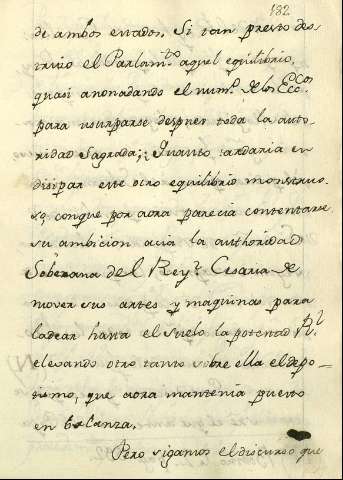 132
de ambos estados. Si tan presto des-
truio el Parlam.to aquel equilibrio,
quasi anonadando el num.o de los Ecc.cos
para usurparse despues toda la auto-
ridad Sagrada; ¿Quanto tardaria en
disipar este otro equilibrio monstruo-
so, conque por aora parecia contentarse
su ambicion acia la authoridad
Soberana del Rey? Cesaria de
mover sus artes y maquinas para
ladear hasta el suelo la potestad R.l
elevando otro tanto sobre ella el despo-
tismo, que aora mantenia puesto
en balanza.
Pero sigamos el discurso que